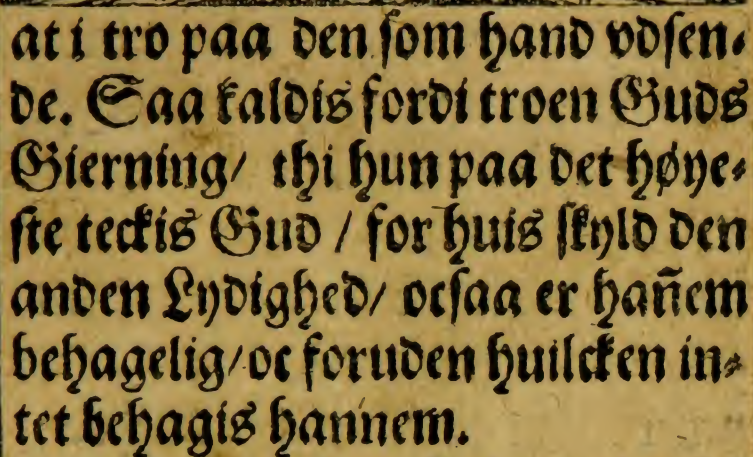 at i tro paa den som hand vdsen⸗
de. Saa kaldis fordi troen Guds
Gierning/ thi hun paa det høye⸗
ste teckis Gud / for huis skyld den
anden Lydighed/ ocsaa er hañem
behagelig/oc foruden huilcken in⸗
tet behagis hannem.